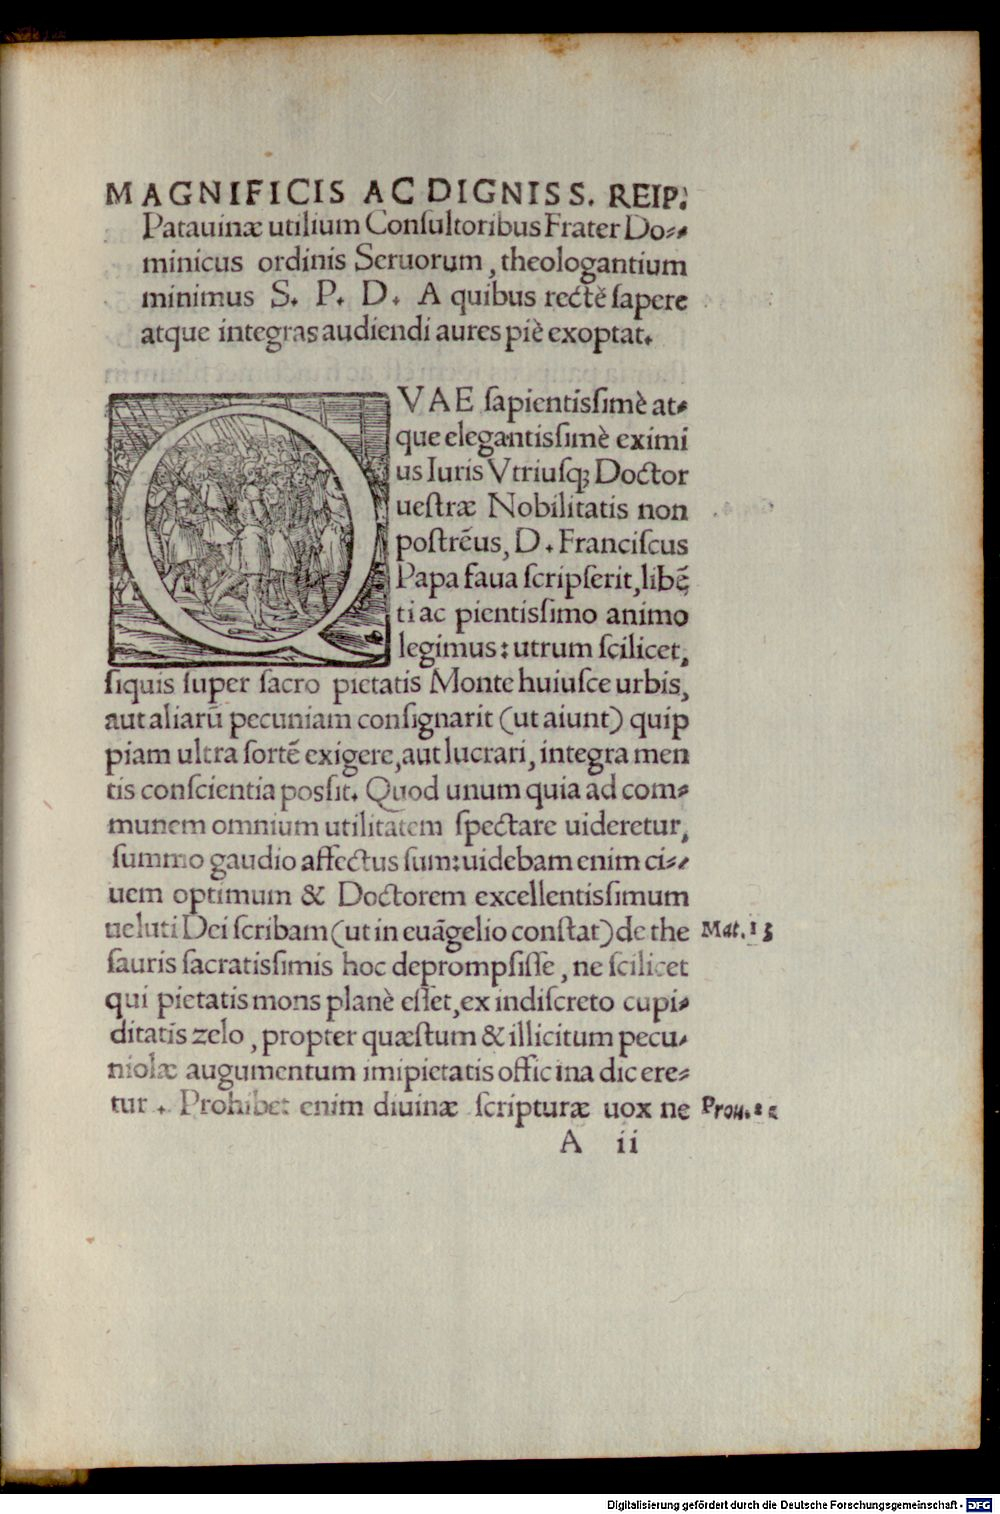 MAGNIFICIS AC DIGNISS. REIP.
Patauinæ utilium Conſultoribus Frater Do-
minicus ordinis Seruorum, theologantium
minimus S. P. D. A quibus rectè ſapere
atque integras audiendi aures piè exoptat.
QVAE ſapientiſſimè at-
que elegantiſſimè eximi
us Iuris Vtriuſq; Doctor
ueſtræ Nobilitatis non
poſtrēus, D. Franciſcus
Papa faua ſcripſerit, libē
ti ac pientiſſimo animo
legimus: utrum ſcilicet,
ſiquis ſuper ſacro pietatis Monte huiuſce urbis,
aut aliarū pecuniam conſignarit (ut aiunt) quip
piam ultra ſortē exigere, aut lucrari, integra men
tis conſcientia poſſit. Quod unum quia ad com-
munem omnium utilitatem ſpectare uideretur,
ſummo gaudio affectus ſum: uidebam enim ci-
uem optimum & Doctorem excellentiſſimum
ueluti Dei ſcribam (ut in euāgelio conſtat) de the Mat. 13
ſauris ſacratiſſimis hoc deprompſiſſe, ne ſcilicet
qui pietatis mons planè eſſet, ex indiſcreto cupi-
ditatis zelo, propter quæſtum & illicitum pecu-
niolæ augumentum imipietatis officina dicere-
tur. Prohibet enim diuinæ ſcripturæ uox ne Prou.
A ii
Digitalisierung gefördert durch die Deutsche Forschungsgemeinschaft - DFG